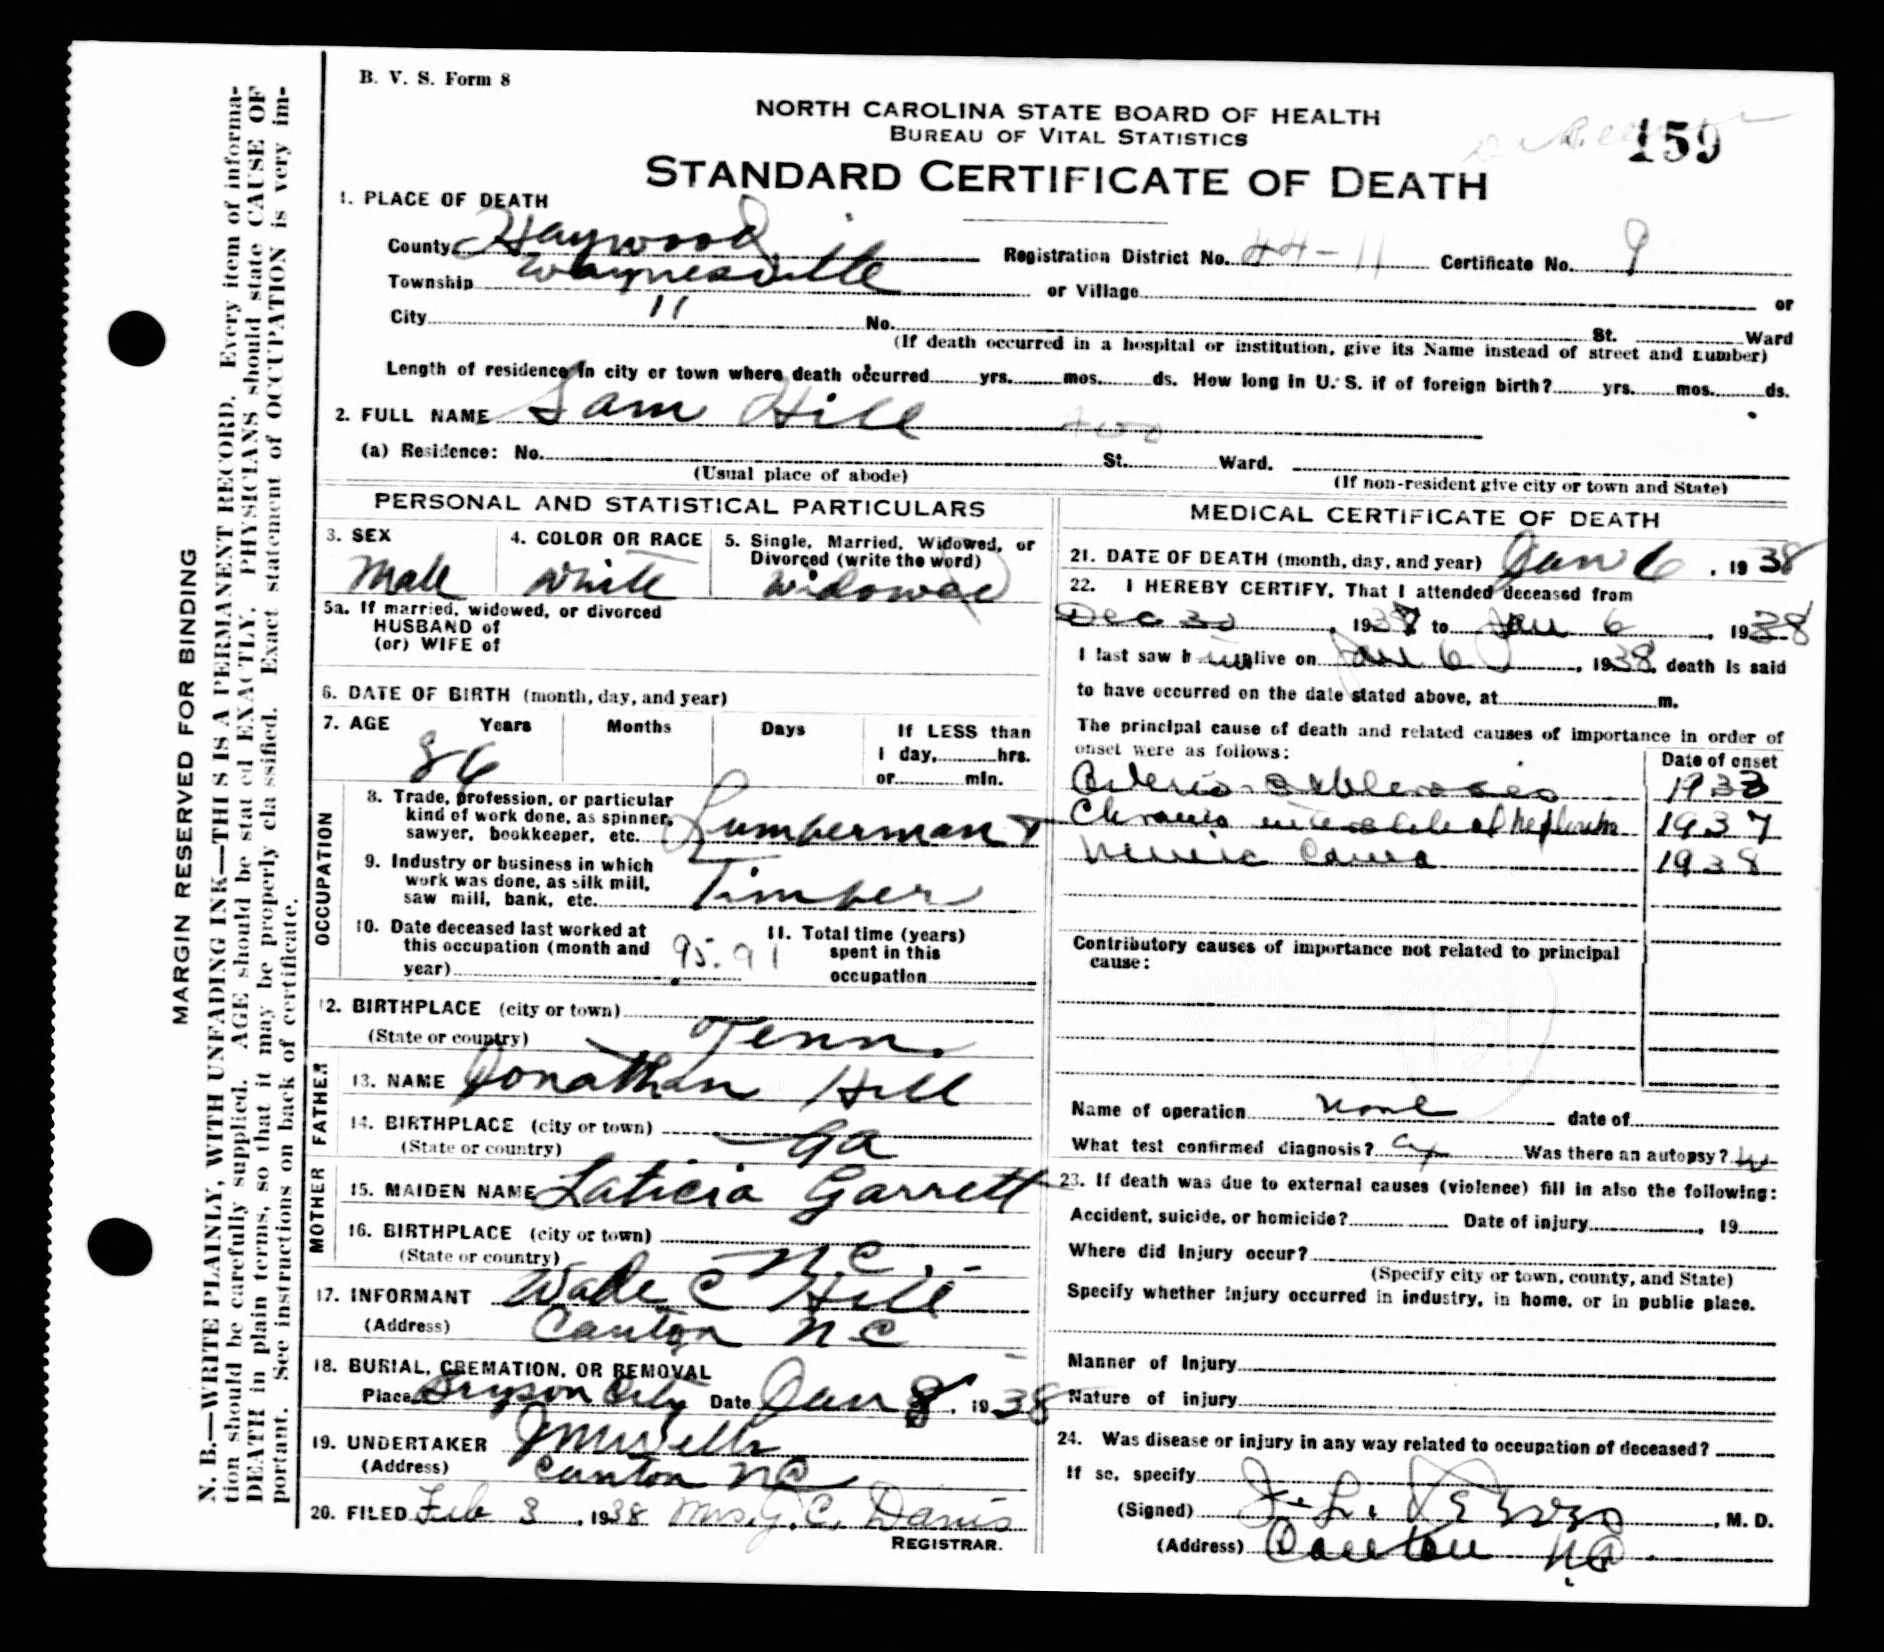 B. V. S. Form 8
NORTH CAROLINA STATE BOARD OF HEALTH
BUREAU OF VITAL STATISTICS
159
STANDARD CERTIFICATE OF DEATH
1. PLACE OF DEATH
County Haywood Registration District No. 44-11 Certificate No. 9
Township Waynesville or Village or
City " No. St. Ward
(If death occurred in a hospital or institution, give its Name instead of street and number)
Length of residence in city or town where death occurred yrs. mos. ds. How long in U. S. if of foreign birth? yrs. mos. ds.
2. FULL NAME Sam Hill
(a) Residence: No. St. Ward.
(Usual place of abode) (If non-resident give city or town and State)
PERSONAL AND STATISTICAL PARTICULARS
3. SEX 4. COLOR OR RACE 5. Single, Married, Widowed, or
Divorced (write the word)
Male White Widowed
5a. If married, widowed, or divorced
HUSBAND of
(or) WIFE of
6. DATE OF BIRTH (month, day, and year)
7. AGE Years Months Days If LESS than
1 day, hrs.
or min.
86
8. Trade, profession, or particular
kind of work done, as spinner,
sawyer, bookkeeper, etc. Lumberman
9. Industry or business in which
work was done, as silk mill,
saw mill, bank, etc. Timber
10. Date deceased last worked at
this occupation (month and
year) 95.91
11. Total time (years)
spent in this
occupation
OCCUPATION
12. BIRTHPLACE (city or town)
(State or country) Tenn.
FATHER
13. NAME Jonathan Hill
14. BIRTHPLACE (city or town)
(State or country) Ga
MOTHER
15. MAIDEN NAME Laticia Garrett
16. BIRTHPLACE (city or town)
(State or country) N.C.
17. INFORMANT Wade C Hill
(Address) Canton N C
18. BURIAL, CREMATION, OR REMOVAL
Place Bryson City Date Jan 8, 1938
19. UNDERTAKER
(Address) Canton NC
20. FILED Feb 3, 1938 Mrs. G. C. Davis
REGISTRAR.
MEDICAL CERTIFICATE OF DEATH
21. DATE OF DEATH (month, day, and year) Jan 6, 1938
22. I HEREBY CERTIFY, That I attended deceased from
Dec 30, 1937 to Jan 6, 1938
I last saw him alive on Jan 6, 1938, death is said
to have occurred on the date stated above, at m.
The principal cause of death and related causes of importance in order of
onset were as follows: Date of onset
Arterio-sclerosis 1933
Chronic interstitial Nephritis 1937
Uremic Coma 1938
Contributory causes of importance not related to principal
cause:
Name of operation none date of
What test confirmed diagnosis? Was there an autopsy?
23. If death was due to external causes (violence) fill in also the following:
Accident, suicide, or homicide? Date of injury, 19
Where did injury occur?
(Specify city or town, county, and State)
Specify whether injury occurred in industry, in home, or in public place.
Manner of Injury
Nature of injury
24. Was disease or injury in any way related to occupation of deceased?
If so, specify
(Signed) J. L. Reeves, M. D.
(Address) Canton NC
MARGIN RESERVED FOR BINDING
N. B.—WRITE PLAINLY, WITH UNFADING INK—THIS IS A PERMANENT RECORD. Every item of informa-
tion should be carefully supplied. AGE should be stated EXACTLY. PHYSICIANS should state CAUSE OF
DEATH in plain terms, so that it may be properly classified. Exact statement of OCCUPATION is very im-
portant. See instructions on back of certificate.